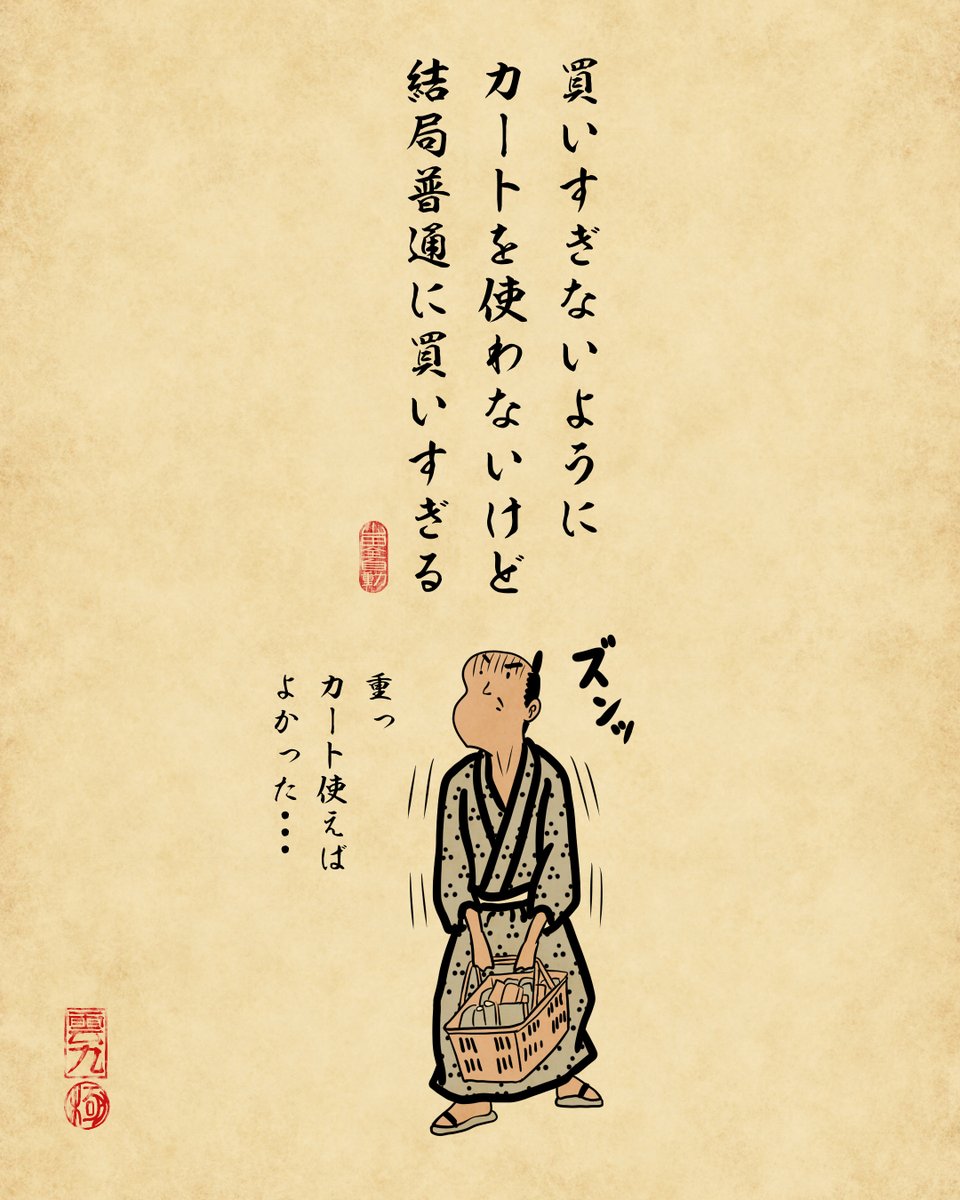 買いすぎないように
カートを使わないけど
結局普通に買いすぎる
ズンッ
重っ
カート使えば
よかった・・・